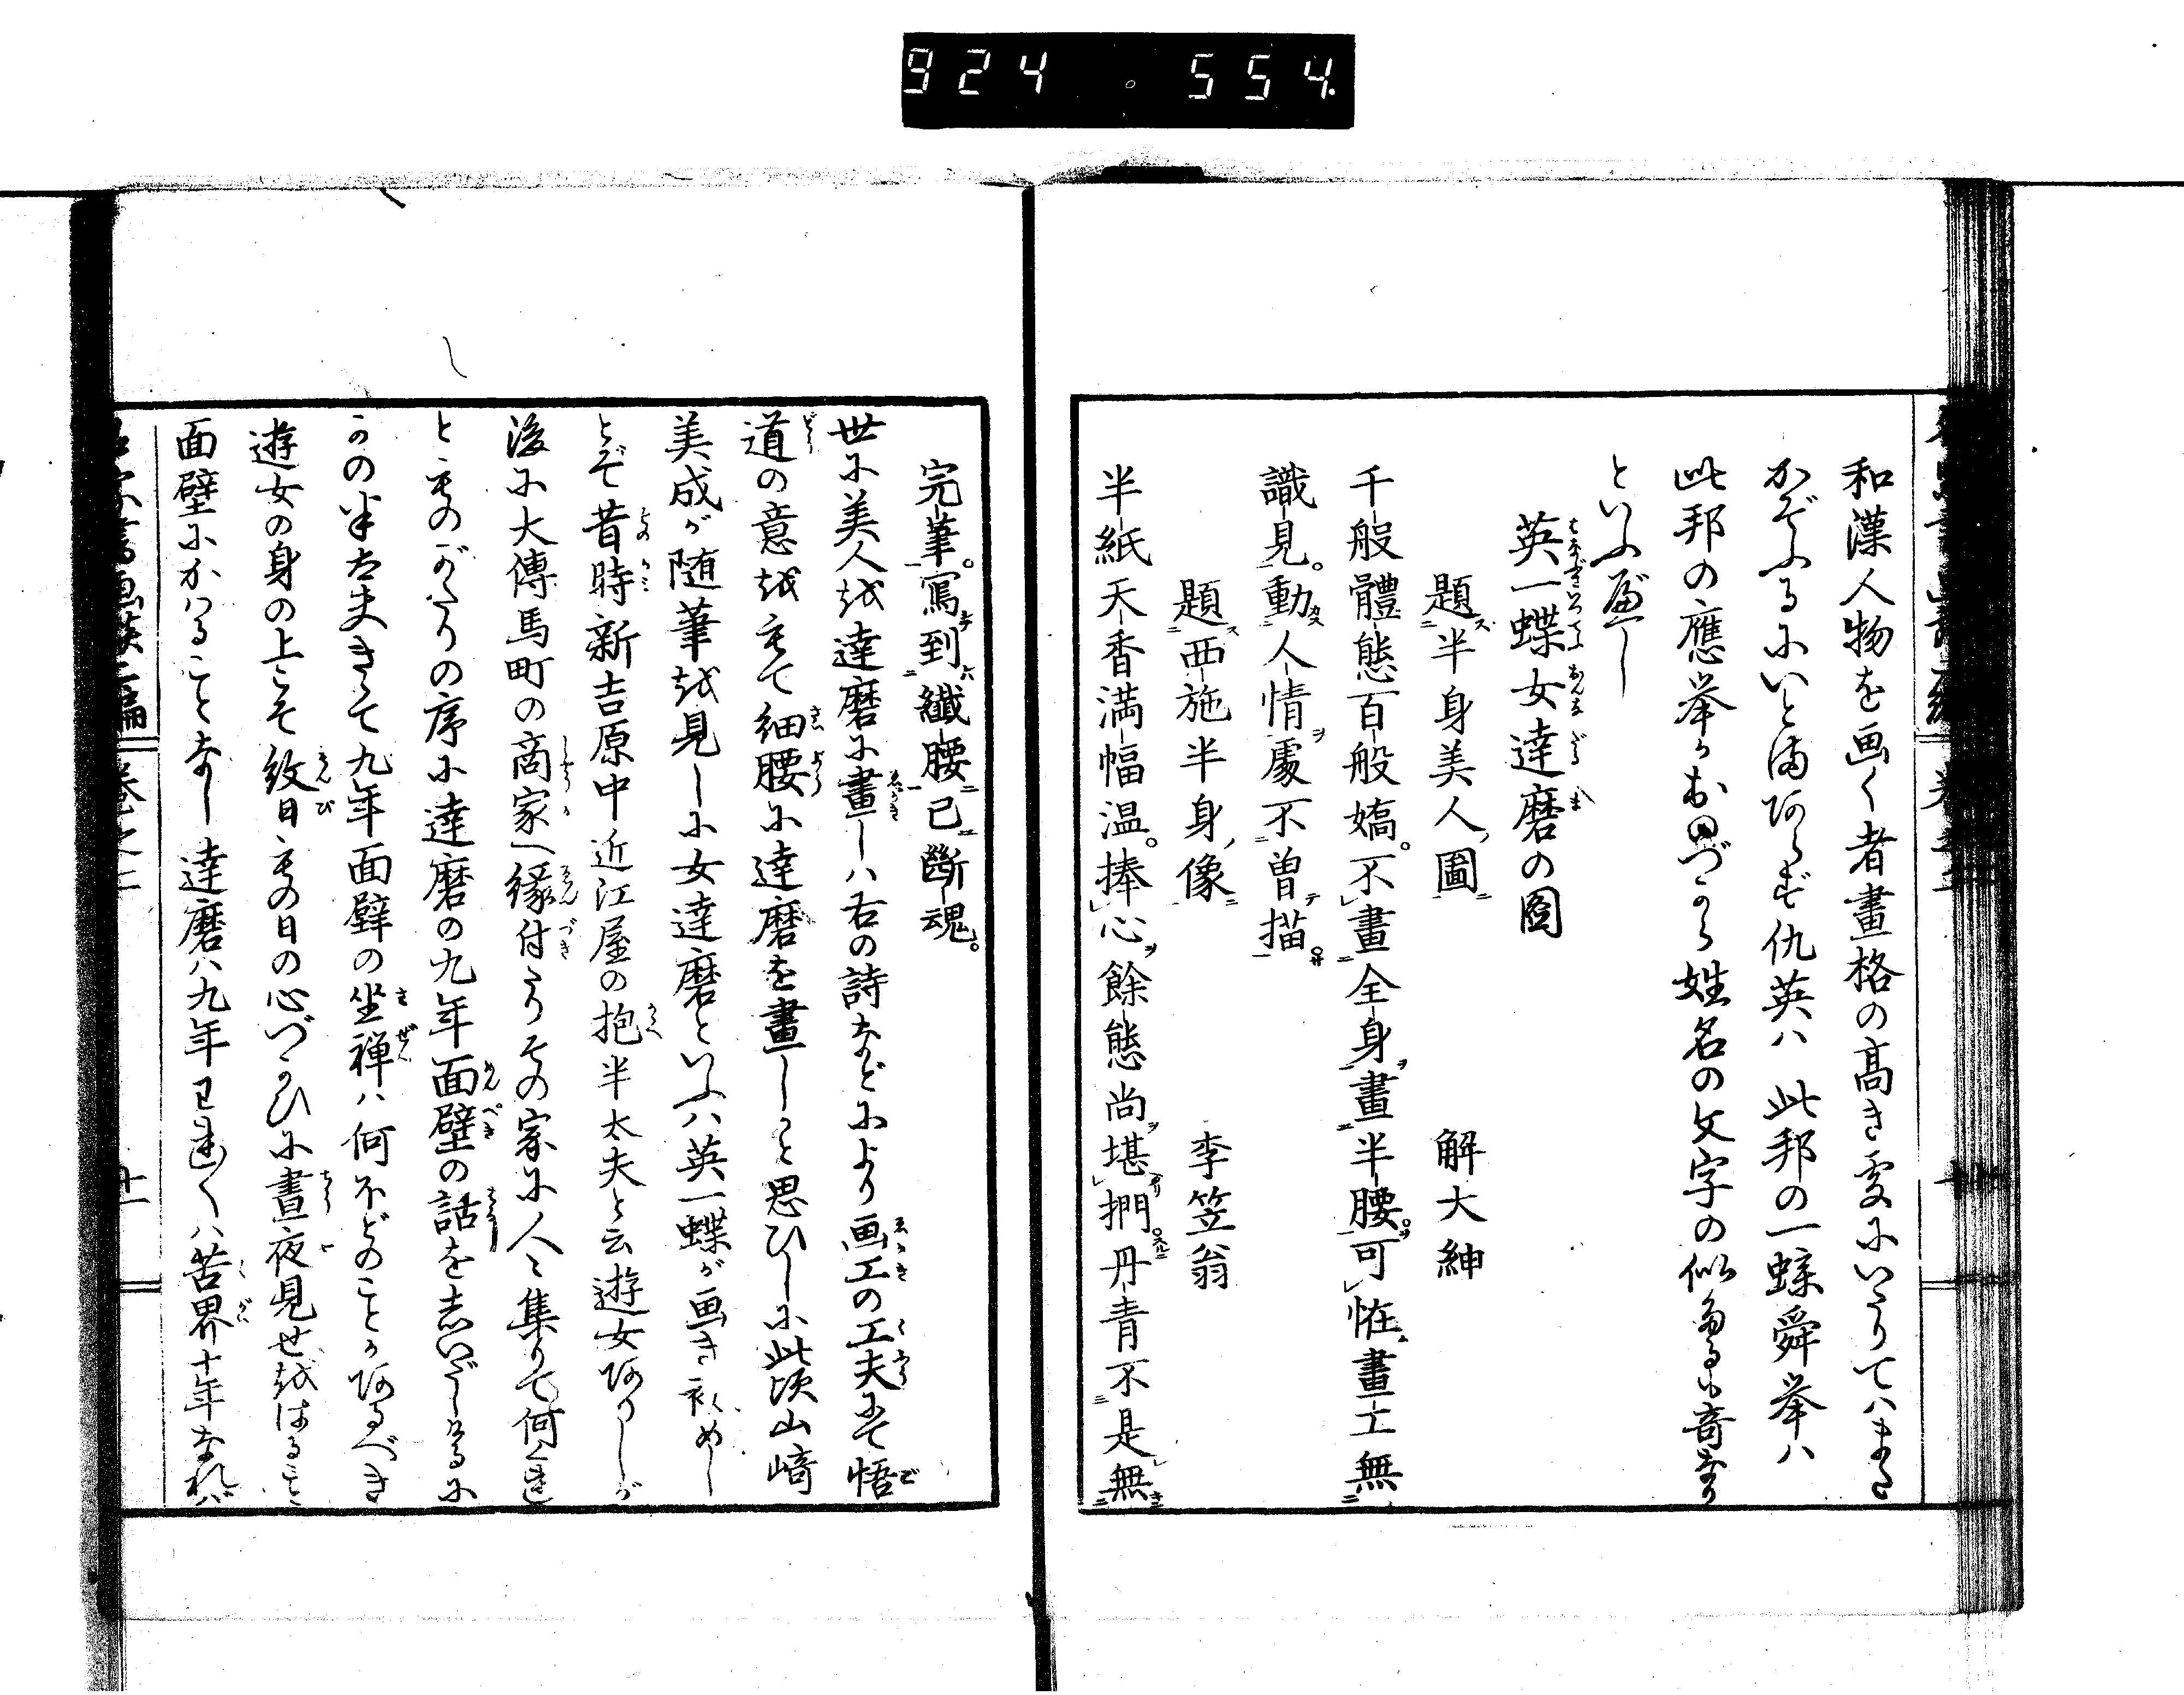 924 554
和漢人物を画く者畫格の高き処にいたりてハまた
かぞふるにいとまあらず仇英ハ此邦の一蝶舜挙ハ
此邦の應挙かおのづから姓名の文字の似たるも奇なり
といふべし
英一蝶女達磨の圖
題半身美人圖 解大紳
千般體態百般嬌。不畫全身畫半腰。可恠畫工無
識見。動人情處不曾描。
題西施半身像 李笠翁
半紙天香満幅温。捧心餘態尚堪捫。丹青不是無
完筆。寫到纖腰已斷魂。
世に美人を達磨に畫しハ右の詩などにより画工の工夫にて悟
道の意をもて細腰に達磨を畫しかと思ひしに此頃山崎
美成が随筆を見しに女達磨といふハ英一蝶が画き初めし
とぞ昔時新吉原中近江屋の抱半太夫と云遊女ありしが
後に大傳馬町の商家へ縁付たりその家に人々集りて何くれ
とものがたりの序に達磨の九年面壁の話をいだしけるに
かの半太夫きゝて九年面壁の坐禅ハ何ほどのことかあるべき
遊女の身の上こそ紋日もの日の心づかひに晝夜見せをはること
面壁にかはることなし達磨ハ九年われ〱ハ苦界十年なれば